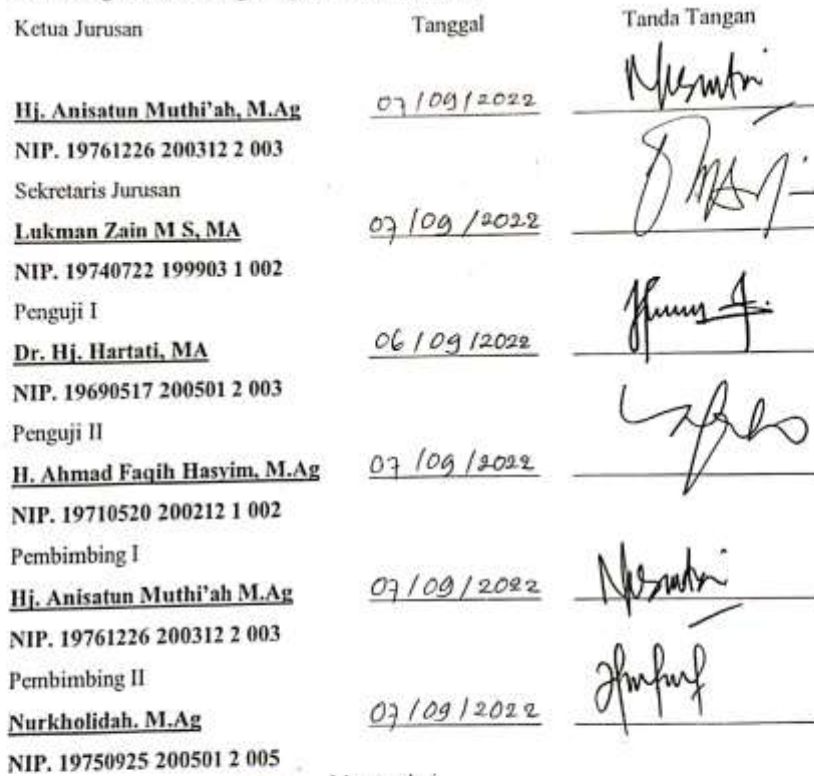 Ketua Jurusan Tanggal Tanda Tangan
Hj. Anisatun Muthi'ah, M.Ag 07/09/2022
NIP. 19761226 200312 2 003
Sekretaris Jurusan
Lukman Zain M S, MA 07/09/2022
NIP. 19740722 199903 1 002
Penguji I
Dr. Hj. Hartati, MA 06/09/2022
NIP. 19690517 200501 2 003
Penguji II
H. Ahmad Faqih Hasyim, M.Ag 07/09/2022
NIP. 19710520 200212 1 002
Pembimbing I
Hj. Anisatun Muthi'ah M.Ag 07/09/2022
NIP. 19761226 200312 2 003
Pembimbing II
Nurkholidah. M.Ag 07/09/2022
NIP. 19750925 200501 2 005